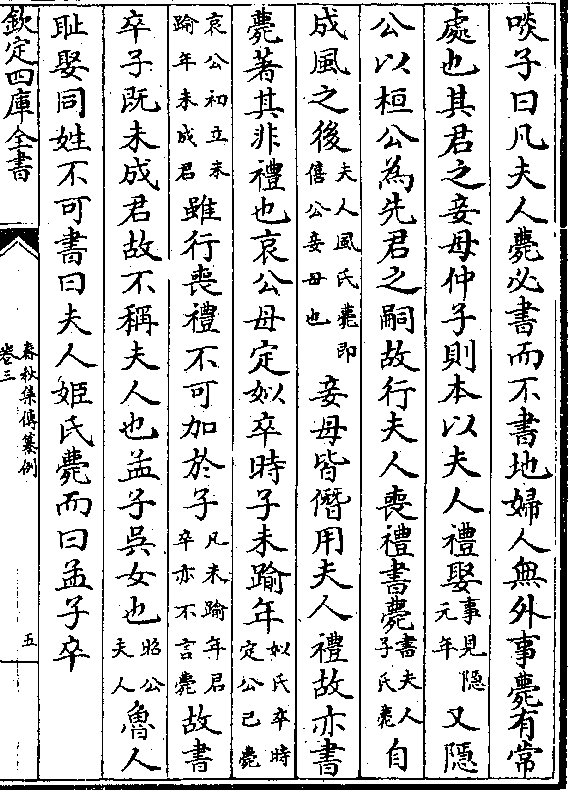 啖子曰凡夫人薨必書而不書地婦人無外事薨有常
處也其君之妾母仲子則本以夫人禮娶事見隱元年又隱
公以桓公為先君之嗣故行夫人喪禮書薨書夫人子氏薨自
成風之後夫人風氏薨即僖公妾母也妾母皆僭用夫人禮故亦書
薨著其非禮也哀公母定姒卒時子未踰年姒氏卒時定公已薨
哀公初立未踰年未成君雖行喪禮不可加於子凡未踰年君卒亦不言薨故書
卒子既未成君故不稱夫人也孟子吳女也昭公夫人魯人
耻娶同姓不可書曰夫人姬氏薨而曰孟子卒
欽定四庫全書
春秋集傳纂例
卷三
五